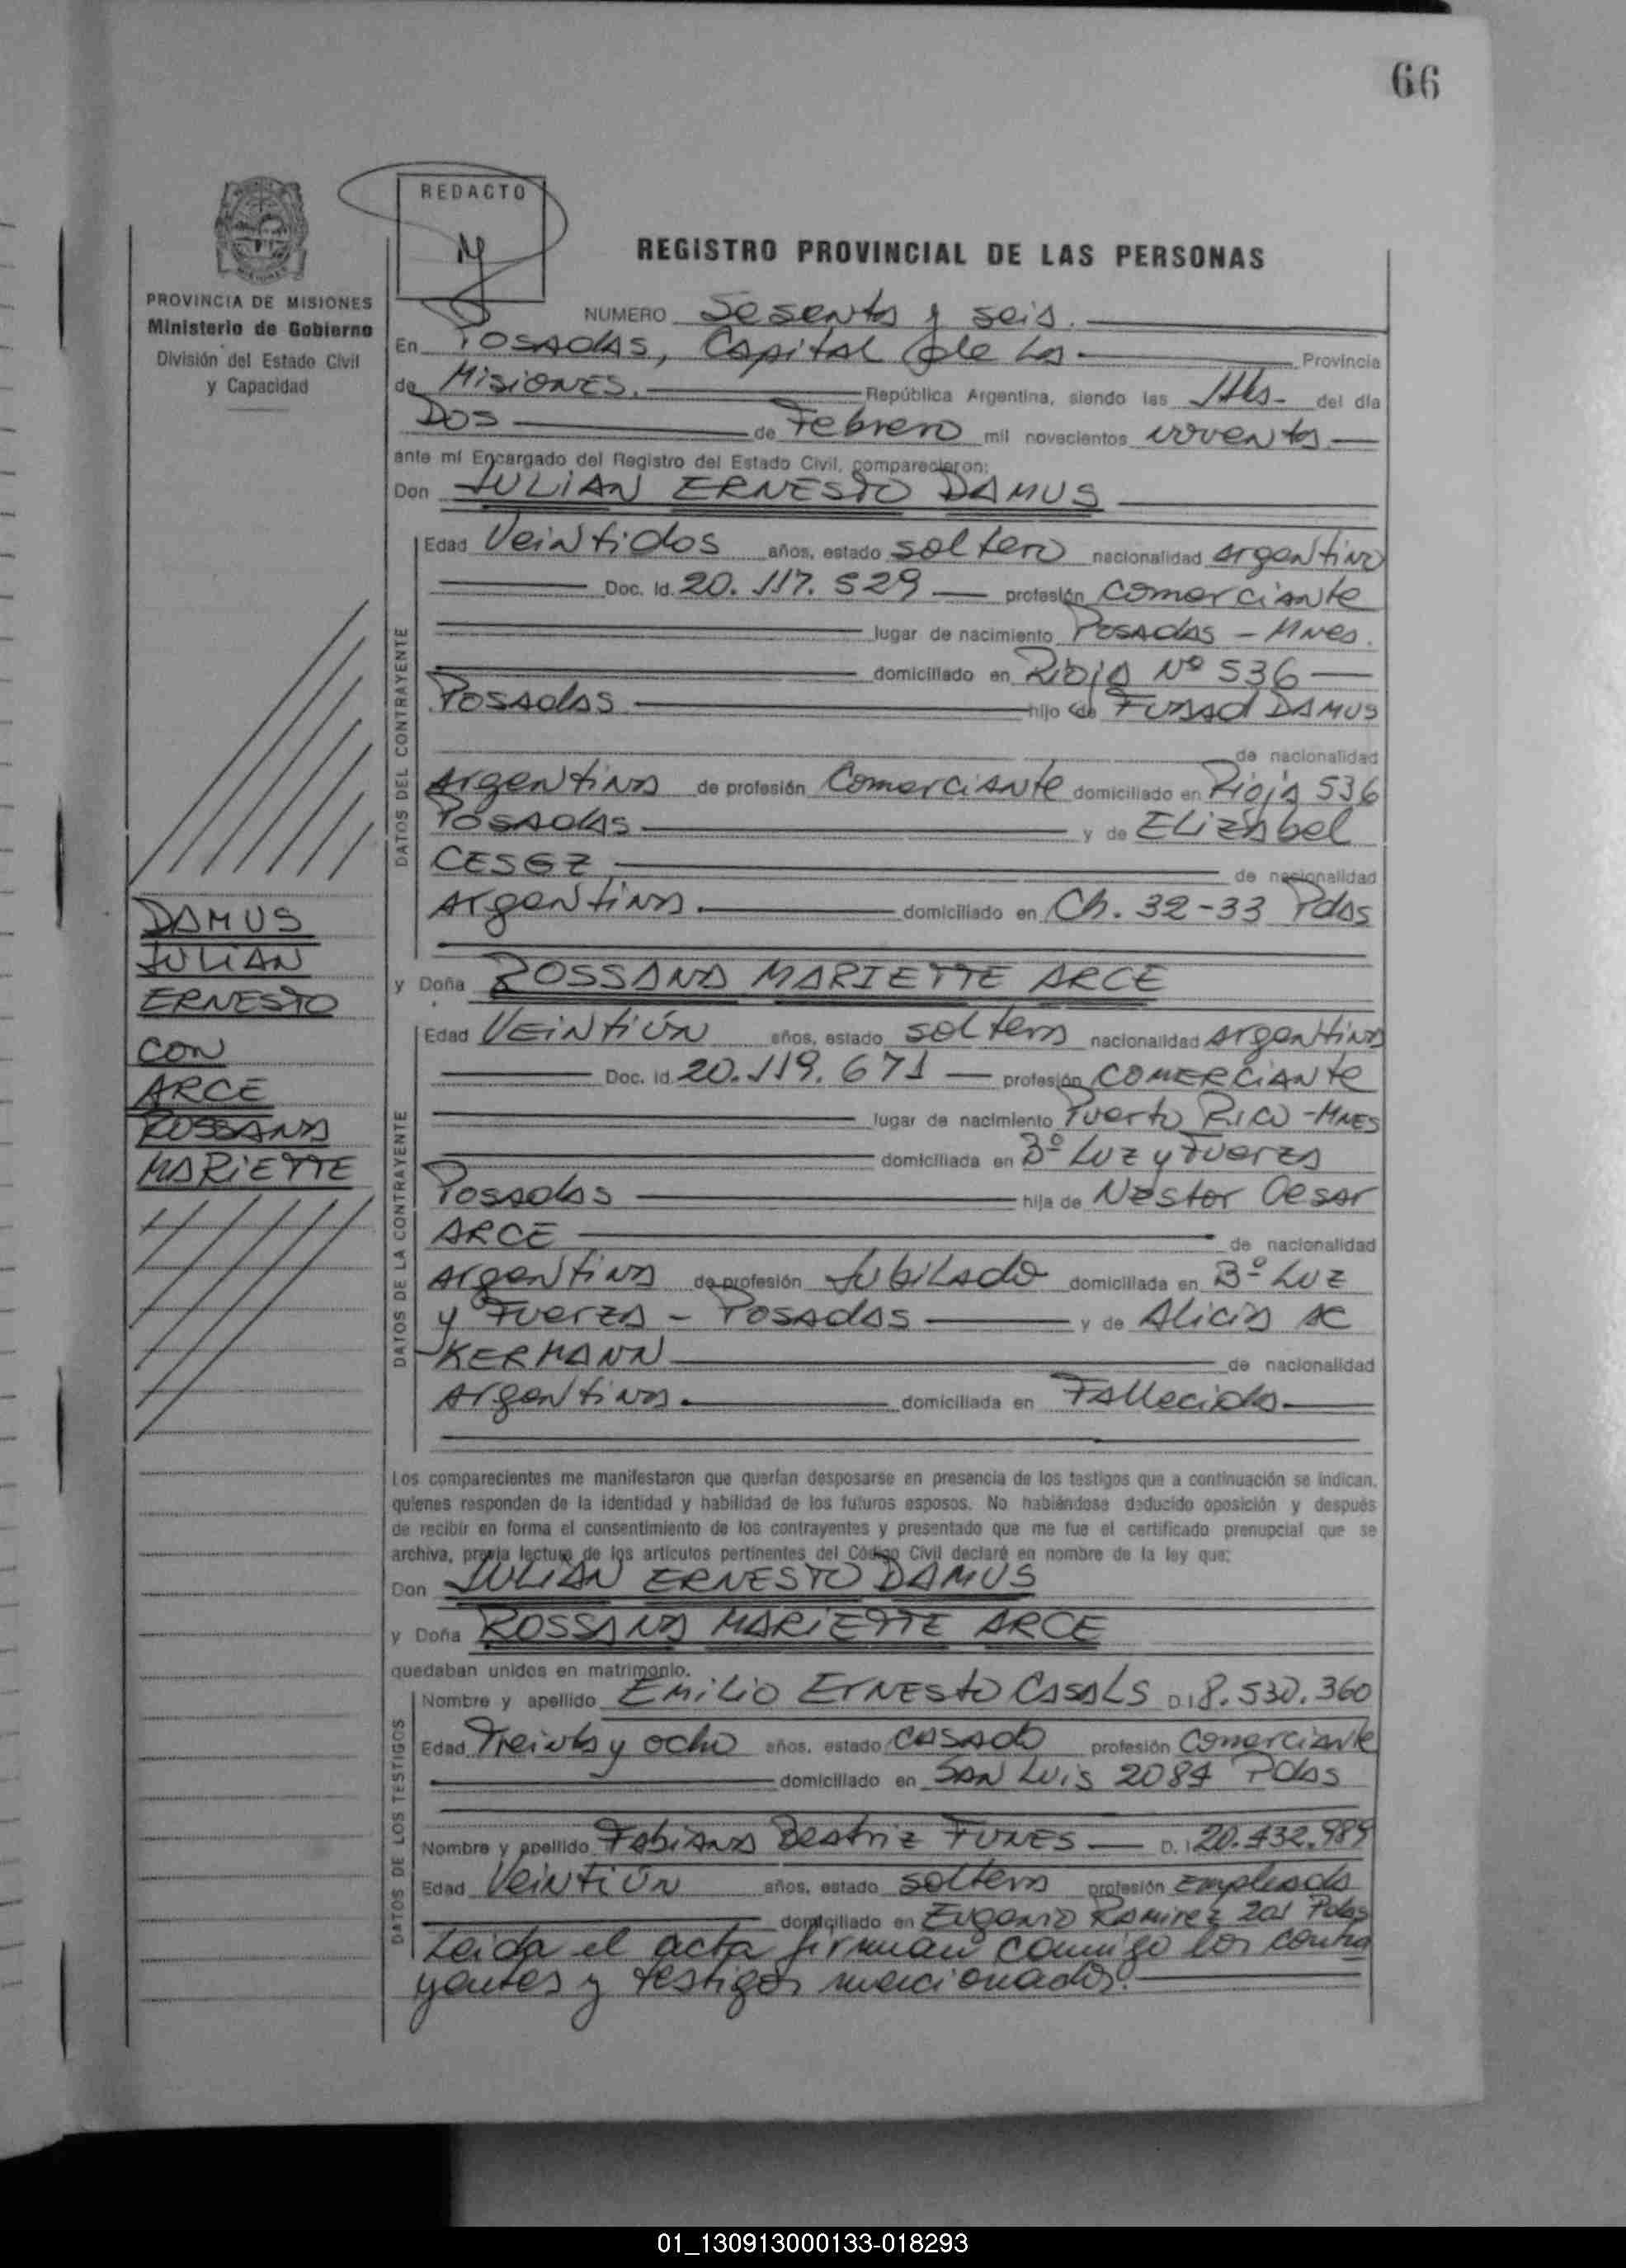 66
REDACTO
REGISTRO PROVINCIAL DE LAS PERSONAS
PROVINCIA DE MISIONES
Ministerio de Gobierno
División del Estado Civil
y Capacidad
NUMERO Sesenta y seis.
En Posadas, Capital de la Provincia
de Misiones. República Argentina, siendo las 11hs- del día
Dos de Febrero mil novecientos noventa
ante mí Encargado del Registro del Estado Civil, comparecieron:
Don JULIAN ERNESTO DAMUS
DATOS DEL CONTRAYENTE
Edad Veintidos años, estado soltero nacionalidad argentino
Doc. Id. 20.117.529 profesión comerciante
lugar de nacimiento Posadas - Mnes.
domiciliado en Rioja Nº 536
Posadas hijo de Fuad DAMUS
de nacionalidad
Argentina de profesión Comerciante domiciliado en Rioja 536
Posadas y de Elizabel
de nacionalidad
Argentina. domiciliado en Ch. 32-33 Pdas
DAMUS
JULIAN
ERNESTO
CON
ARCE
ROSSANA
MARIETTE
y Doña ROSSANA MARIETTE ARCE
DATOS DE LA CONTRAYENTE
Edad Veintiún años, estado soltera nacionalidad argentina
Doc. Id 20.119.671 profesión comerciante
lugar de nacimiento Puerto Rico - Mnes
domiciliada en Bº Luz y Fuerza
Posadas hija de Nestor Cesar
ARCE de nacionalidad
Argentina de profesión Jubilado domiciliada en Bº Luz
y Fuerza - Posadas y de Alicia AC
KERMANN de nacionalidad
Argentina. domiciliada en Fallecida
Los comparecientes me manifestaron que querían desposarse en presencia de los testigos que a continuación se indican,
quienes responden de la identidad y habilidad de los futuros esposos. No habiéndose deducido oposición y después
de recibir en forma el consentimiento de los contrayentes y presentado que me fue el certificado prenupcial que se
archiva, previa lectura de los artículos pertinentes del Código Civil declaré en nombre de la ley que:
Don JULIAN ERNESTO DAMUS
y Doña ROSSANA MARIETTE ARCE
quedaban unidos en matrimonio.
DATOS DE LOS TESTIGOS
Nombre y apellido Emilio Ernesto CASALS D.I 8.530.360
Edad Treinta y ocho años, estado casado profesión Comerciante
domiciliado en San Luis 2084 Pdas
Nombre y apellido Fabiana Beatriz FUNES D. I 20.432.989
Edad Veintiún años, estado soltera profesión empleada
domiciliado en Eugenio Ramirez 201 Pdas
Leida el acta firman conmigo los contra
yentes y testigos mencionados.
01_130913000133-018293